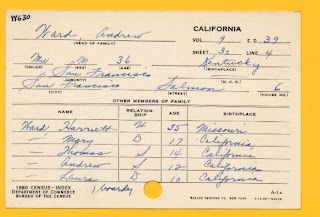 W630
CALIFORNIA
Ward, Andrew
(HEAD OF FAMILY)
VOL. 9 E.D. 39
SHEET 30 LINE 4
Mu M 36
(COLOR) (SEX) (AGE)
Kentucky
(BIRTHPLACE)
San Francisco
(COUNTY)
San Francisco Salmon 6
(CITY) (STREET) (HOUSE NO.)
OTHER MEMBERS OF FAMILY
NAME RELATION-SHIP AGE BIRTHPLACE
Ward, Harriett W 35 Missouri
— Mary D 17 California
— Thomas S 14 California
— Andrew S 12 California
— Laura D 10 California
1880 CENSUS—INDEX
DEPARTMENT OF COMMERCE
BUREAU OF THE CENSUS
A-1a